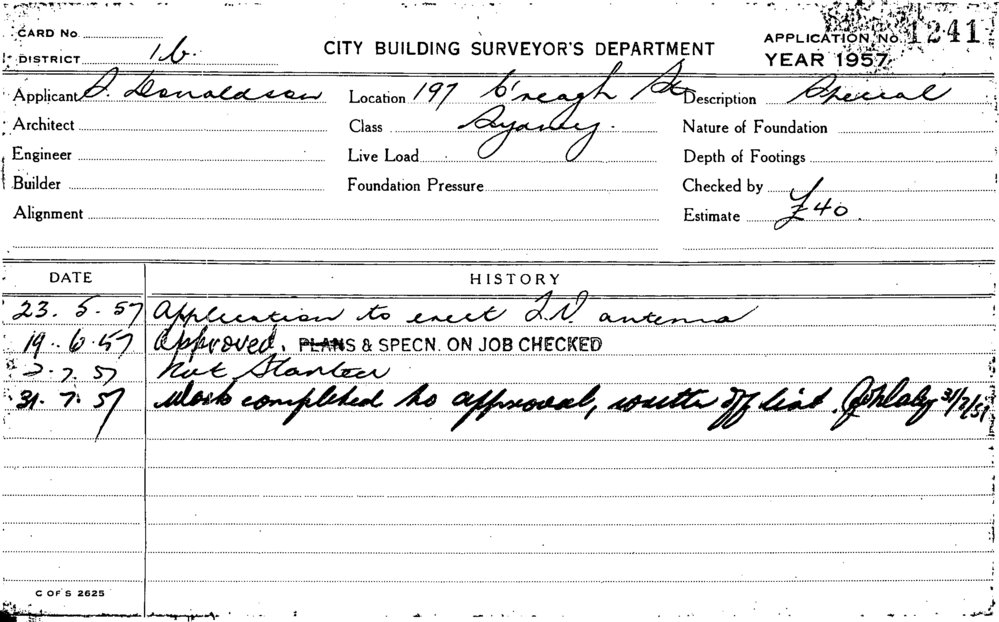 CARD No.
DISTRICT 16.
CITY BUILDING SURVEYOR'S DEPARTMENT
APPLICATION No. 1241
YEAR 1957
Applicant Donaldson
Location 197 C'reagh St
Description Special
Architect
Class Sydney.
Nature of Foundation
Engineer
Live Load
Depth of Footings
Builder
Foundation Pressure
Checked by
Alignment
Estimate £40.
DATE HISTORY
23. 5. 57 Application to erect T.V. antenna
19. 6. 57 Approved. PLANS & SPECN. ON JOB CHECKED
7. 57 Not Started
31. 7. 57 Work completed to approval, write off list. 31/7/57
C OF S 2625